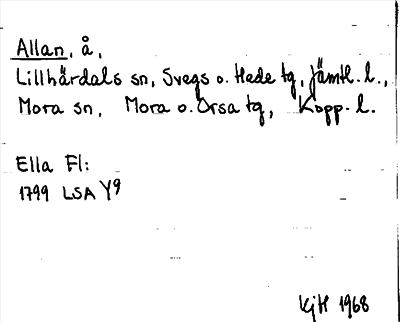 Allan, å,
Lillhärdals sn, Svegs o. Hede tg, Jämtl. l.,
Mora sn, Mora o. Orsa tg, Kopp. l.
Ella Fl:
1799 LSA Y9
KjH 1968